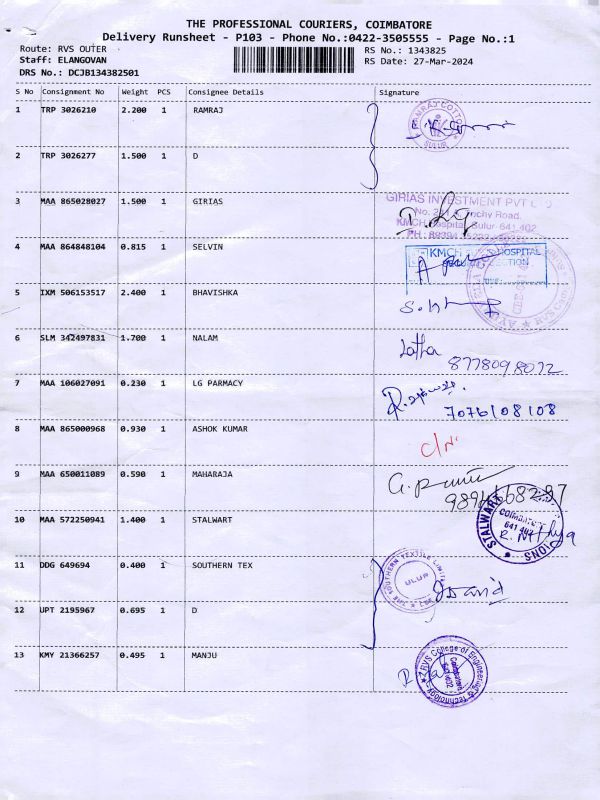 THE PROFESSIONAL COURIERS, COIMBATORE
Delivery Runsheet - P103 - Phone No.:0422-3505555 - Page No.:1
Route: RVS OUTER RS No.: 1343825
Staff: ELANGOVAN RS Date: 27-Mar-2024
DRS No.: DCJB134382501
S No Consignment No Weight PCS Consignee Details Signature
1 TRP 3026210 2.200 1 RAMRAJ
RAMRAJ COTTON SULUR
2 TRP 3026277 1.500 1 D
3 MAA 865028027 1.500 1 GIRIAS
GIRIAS INVESTMENT PVT
Road.
Sulur 641 402
4 MAA 864848104 0.815 1 SELVIN
KMCH HOSPITAL
5 IXM 506153517 2.400 1 BHAVISHKA
6 SLM 342497831 1.700 1 NALAM
Latha
8778098072
7 MAA 106027091 0.230 1 LG PARMACY
7076108108
8 MAA 865000968 0.930 1 ASHOK KUMAR
C/N
9 MAA 650011089 0.590 1 MAHARAJA
10 MAA 572250941 1.400 1 STALWART
STALWART
COIMBATORE
641 402
R. Nithya
11 DDG 649694 0.400 1 SOUTHERN TEX
THE SOUTHERN TEXTILE LIMITED
12 UPT 2195967 0.695 1 D
13 KMY 21366257 0.495 1 MANJU
RVS College of Engineering & Technology
Coimbatore
641 402